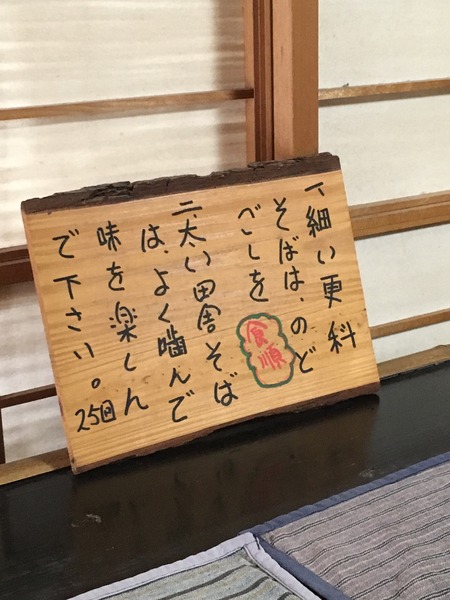 一、細い更科
そばは、のど
ごしを
食順
二、太い田舎そば
は、よく噛んで
味を楽しん
で下さい。
25回